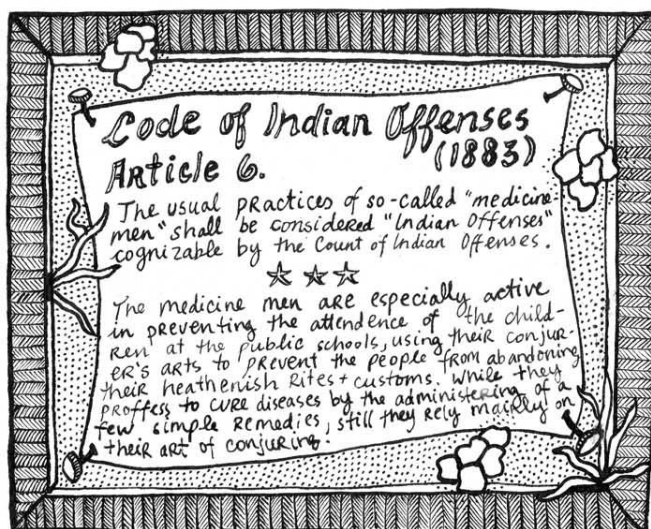 Code of Indian Offenses
(1883)
Article 6.
The usual practices of so-called "medicine-
men" shall be considered "Indian Offenses"
cognizable by the Count of Indian Offenses.
The medicine men are especially active
in preventing the attendence of the child-
ren at the public schools, using their conjur-
er's arts to prevent the people from abandoning
their heathenish rites + customs. While they
proffess to cure diseases by the administering of a
few simple remedies, still they rely mainly on
their art of conjuring.